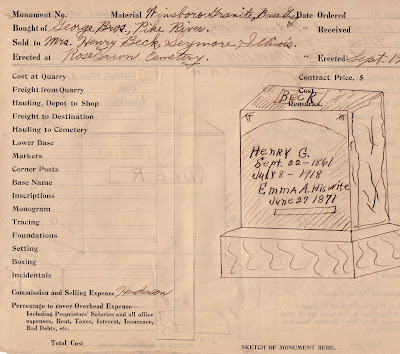 Monument No. Material Winsboro Granite, Date Ordered
Bought of George Bros., Pike River. " Received
Sold to Mrs. Henry Beck, Seymore, Illinois. "
Erected at Roselawn Cemetery. " Erected Sept. 12
Cost at Quarry Contract Price, $
Freight from Quarry Cost.
Hauling, Depot to Shop Remarks.
Freight to Destination
Hauling to Cemetery
Lower Base
Markers
Corner Posts
Base Name
Inscriptions
Monogram
Tracing
Foundations
Setting
Boxing
Incidentals
Commission and Selling Expense Henderson
Percentage to cover Overhead Expense
Including Proprietors' Salaries and all office
expenses, Rent, Taxes, Interest, Insurance,
Bad Debts, etc.
Total Cost
BECK
Henry G.
Sept. 22-1861
July 8-1918
Emma A. His wife
June 27 1871
SKETCH OF MONUMENT HERE.